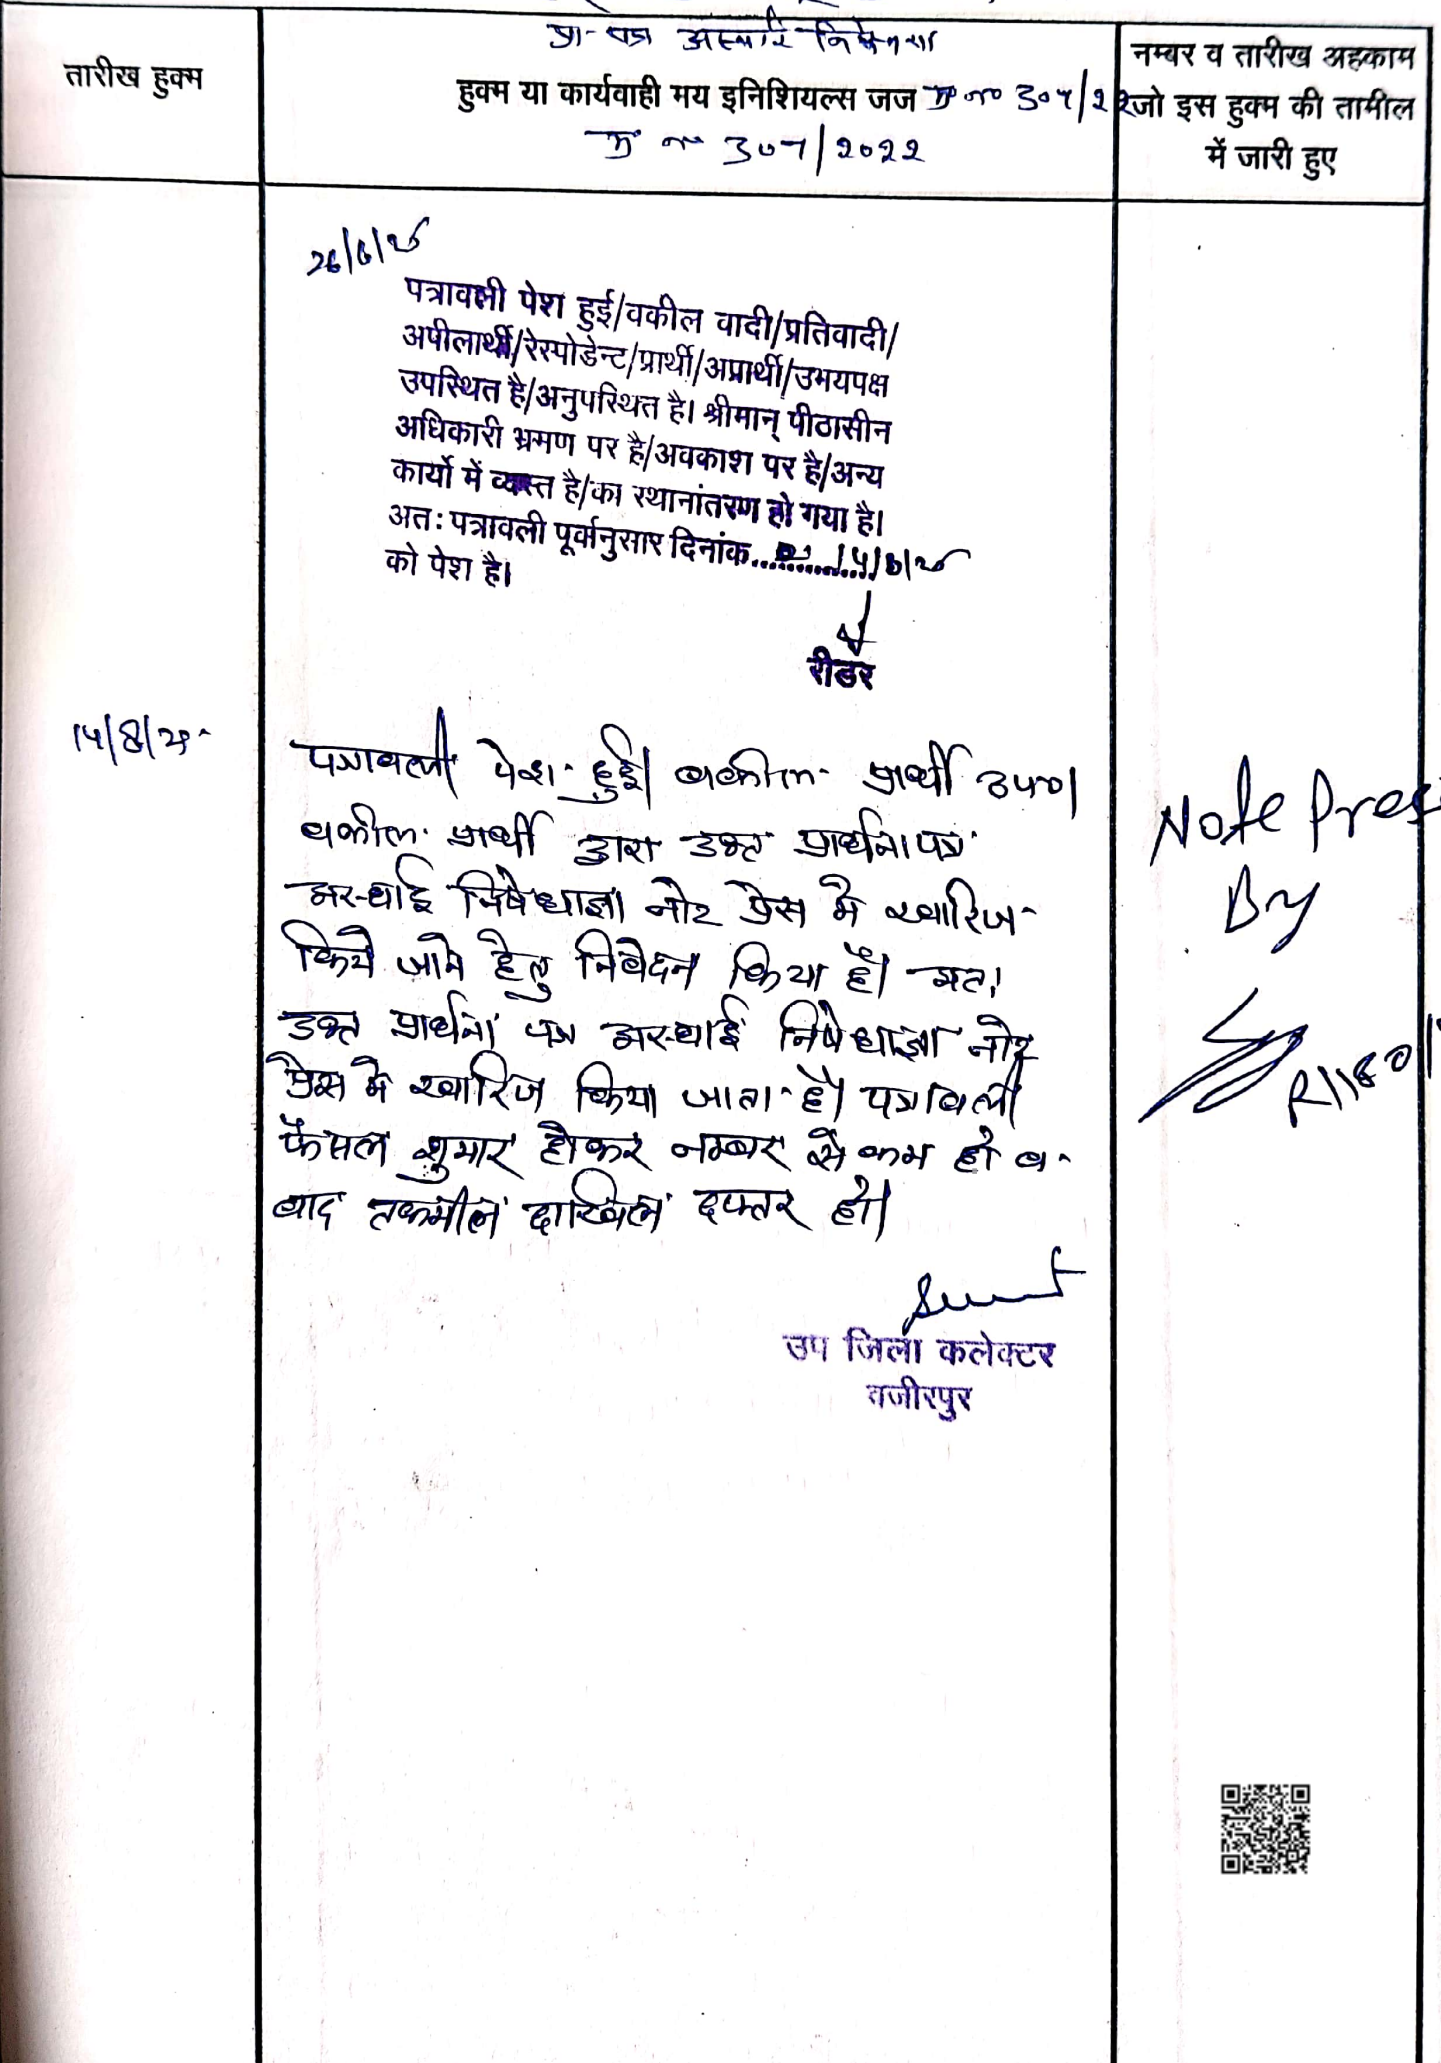 प्रा- पत्र अस्थाई निषेधाज्ञा
तारीख हुक्म
हुक्म या कार्यवाही मय इनिशियल्स जज
307/2022
नम्बर व तारीख अहकाम
जो इस हुक्म की तामील
में जारी हुए
पत्रावली पेश हुई/वकील वादी/प्रतिवादी/
अपीलार्थी/रेस्पोडेन्ट/प्रार्थी/अप्रार्थी/उभयपक्ष
उपस्थित है/अनुपस्थित है। श्रीमान् पीठासीन
अधिकारी भ्रमण पर है/अवकाश पर है/अन्य
कार्यो में व्यस्त है/का स्थानांतरण हो गया है।
अतः पत्रावली पूर्वानुसार दिनांक..............
को पेश है।
रीडर
पत्रावली पेश हुई। वकील प्रार्थी उप०।
वकील प्रार्थी द्वारा उक्त प्रार्थना पत्र
अस्थाई निषेधाज्ञा नोट प्रेस में खारिज
किये जाने हेतु निवेदन किया है। अतः
उक्त प्रार्थना पत्र अस्थाई निषेधाज्ञा नोट
प्रेस में खारिज किया जाता है। पत्रावली
फैसल शुमार होकर नम्बर से कम हो व
बाद तकमील दाखिल दफ्तर हो।
Note Pres
By
उप जिला कलेक्टर
वजीरपुर